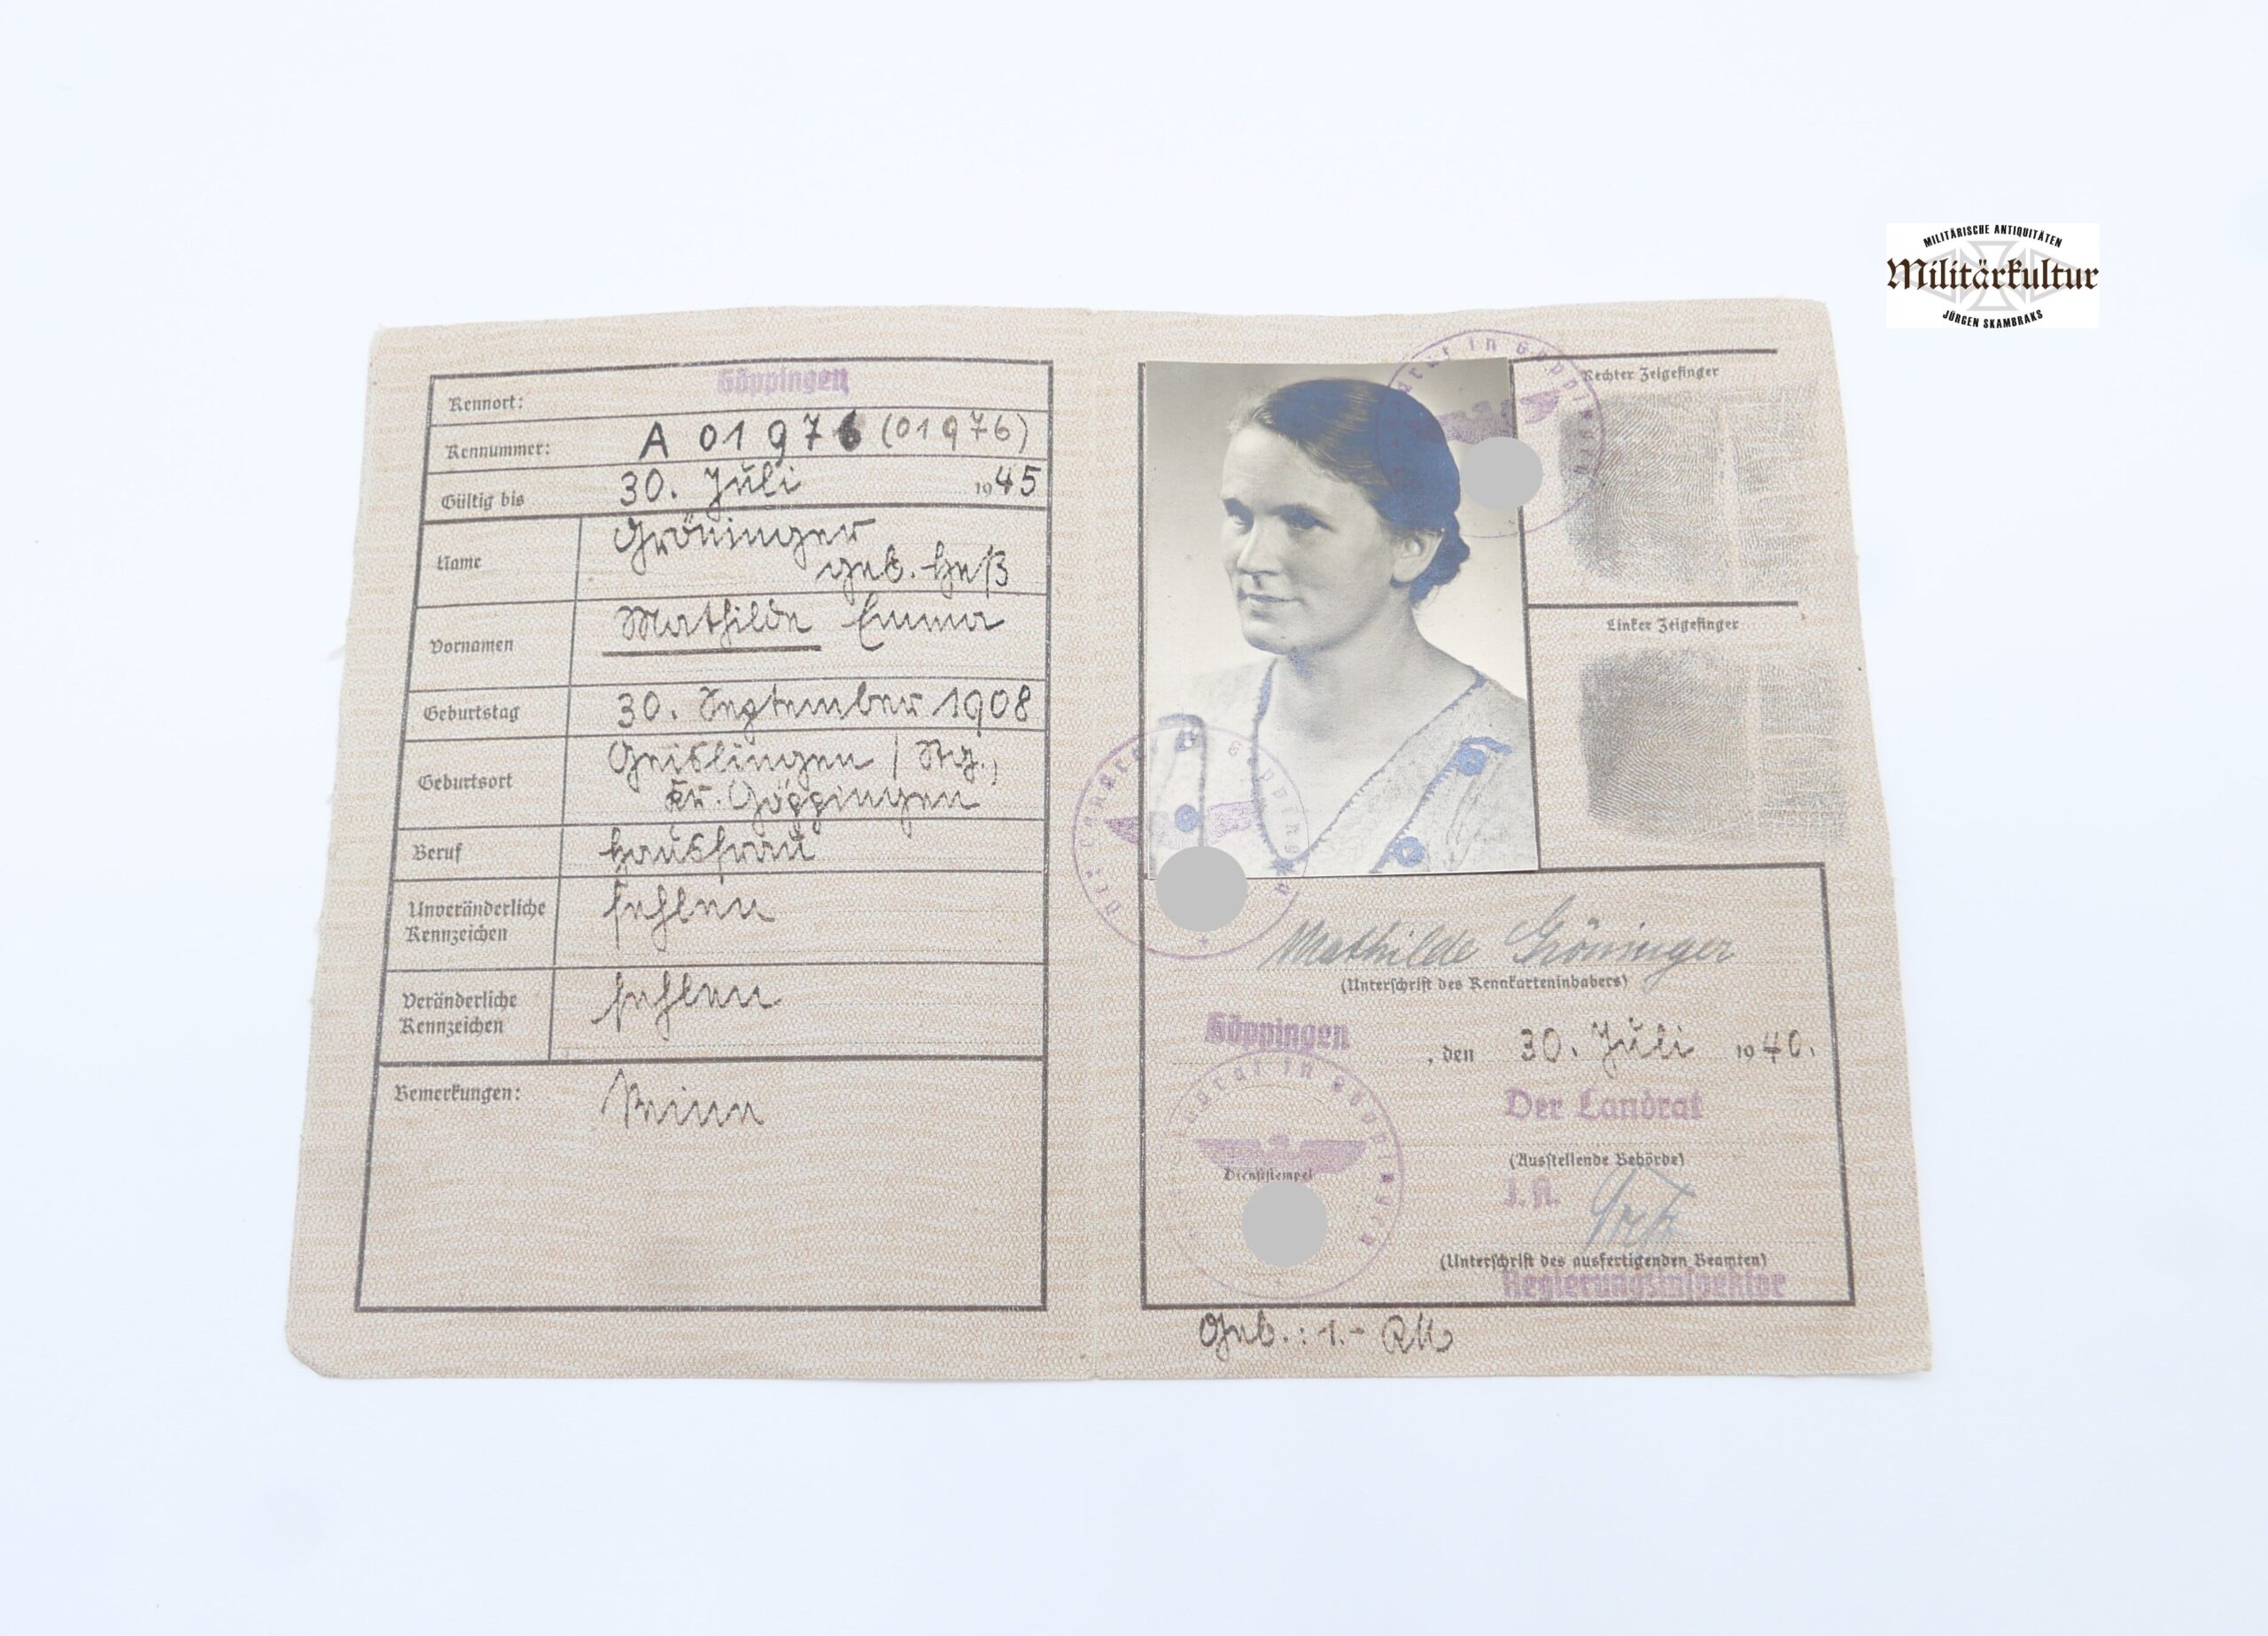 MILITÄRISCHE ANTIQUITÄTEN
Militärkultur
JÜRGEN SKAMBRAKS
Kennort: Göppingen
Kennummer: A 01976 (01976)
Gültig bis 30. Juli 1945
Name Gröninger
geb. Heß
Vornamen Mathilde Emma
Geburtstag 30. September 1908
Geburtsort Geislingen / Stg.,
Kr. Göppingen
Beruf Hausfrau
Unveränderliche Kennzeichen fehlen
Veränderliche Kennzeichen fehlen
Bemerkungen: Keine
Der Landrat in Göppingen
Rechter Zeigefinger
Linker Zeigefinger
Der Landrat in Göppingen
Mathilde Gröninger
(Unterschrift des Kennkarteninhabers)
Göppingen, den 30. Juli 1940.
Der Landrat in Göppingen
Dienststempel
Der Landrat
(Ausstellende Behörde)
I.A.
(Unterschrift des ausfertigenden Beamten)
Regierungsinspektor
Geb.: 1.- RM